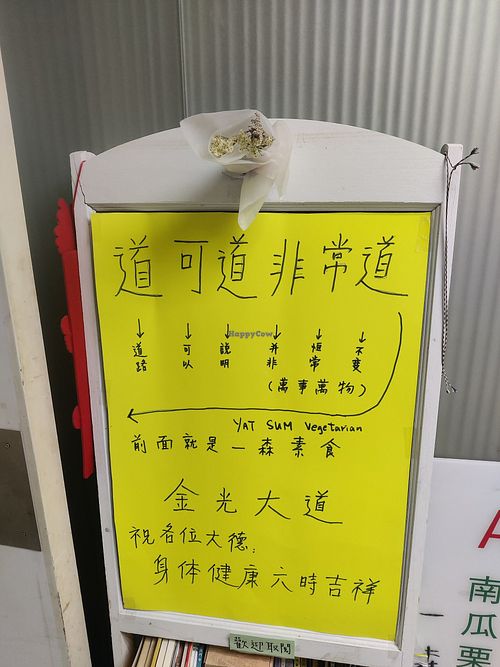 道可道非常道
道路 可以 説明 并非 恒常 不变
(萬事萬物)
HappyCow
YAT SUM Vegetarian
前面就是一森素食
金光大道
祝各位大德:
身体健康六時吉祥
歡迎取閱
A
南
瓜
栗